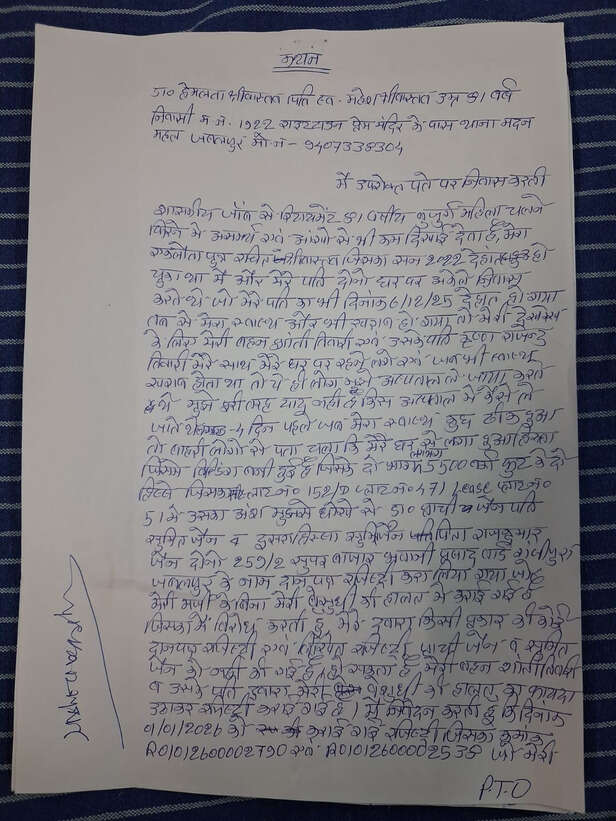 कथन
डॉ हेमलता श्रीवास्तव पति स्व. महेश श्रीवास्तव उम्र 81 वर्ष
निवासी म.नं. 1922 राइटटाउन प्रेम मंदिर के पास थाना मदन
महल जबलपुर मो नं - 9407338304
मैं उपरोक्त पते पर निवास करती
शासकीय जॉब से रिटायमेंट 81 वर्षीय बुजुर्ग महिला चलने
फिरने में असमर्थ एवं आंखो से भी कम दिखाई देता है, मेरा
एकलौता पुत्र रचित जिसका सन 2022 देहांत हो
चुका था मैं और मेरे पति दोनो घर पर अकेले निवास
करते थे जो मेरे पति का भी दिनांक 6/12/25 देहांत हो गया
तब से मेरा स्वास्थ्य और भी खराब हो गया, तो मेरी देखरेख
के लिए मेरी बहन शान्ती तिवारी एवं उसके पति
तिवारी मेरे साथ मेरे घर पर रहने लगे एवं जब भी स्वास्थ्य
खराब होता था तो ये ही लोग मुझे अस्पताल ले जाया करते
थे मुझे पूरी तरह याद नही है किस अस्पताल में कैसे ले
जाते थे 3-4 दिन पहले जब मेरा स्वास्थ्य कुछ ठीक हुआ
तो बाहरी लोगो से पता चला कि मेरे घर से लगा हुआ हिस्सा
जिसमे बनी हुई है जिसके दो भाग लगभग 5500 वर्ग फुट के दो
हिस्से जिसका प्लाट नं० 152/D प्लाट नं० 471 Lease प्लाट नं०
51 में उसका अंश मुझसे धोखे से डॉ० प्राची जैन पति
सुमित जैन व दूसरा हिस्सा सुमित जैन पिता राजकुमार
जैन दोनो 259/2 सुपर बाजार भवानी प्रसाद वार्ड
जबलपुर के नाम दान पत्र रजिस्ट्री करा लिया गया जो
मेरी मर्जी के बिना मेरी बेसुधी की हालत में कराई गई है
जिसका मैं विरोध करती हूं मेरे द्वारा किसी प्रकार की कोई
दानपत्र रजिस्ट्री एवं रजिस्ट्री प्राची जैन व सुमित
जैन को नही की गई है, हो सकता है मेरी बहन शान्ती तिवारी
व उसके पति द्वारा मेरी बेसुधी की हालत का फायदा
उठाकर रजिस्ट्री कराई गई है। मैं निवेदन करती हूं कि दिनांक
01/01/2026 को कराई गई रजिस्ट्री जिसका क्रमांक
R01012600002790 एवं R01012600002538 जो मेरी
P.T.O